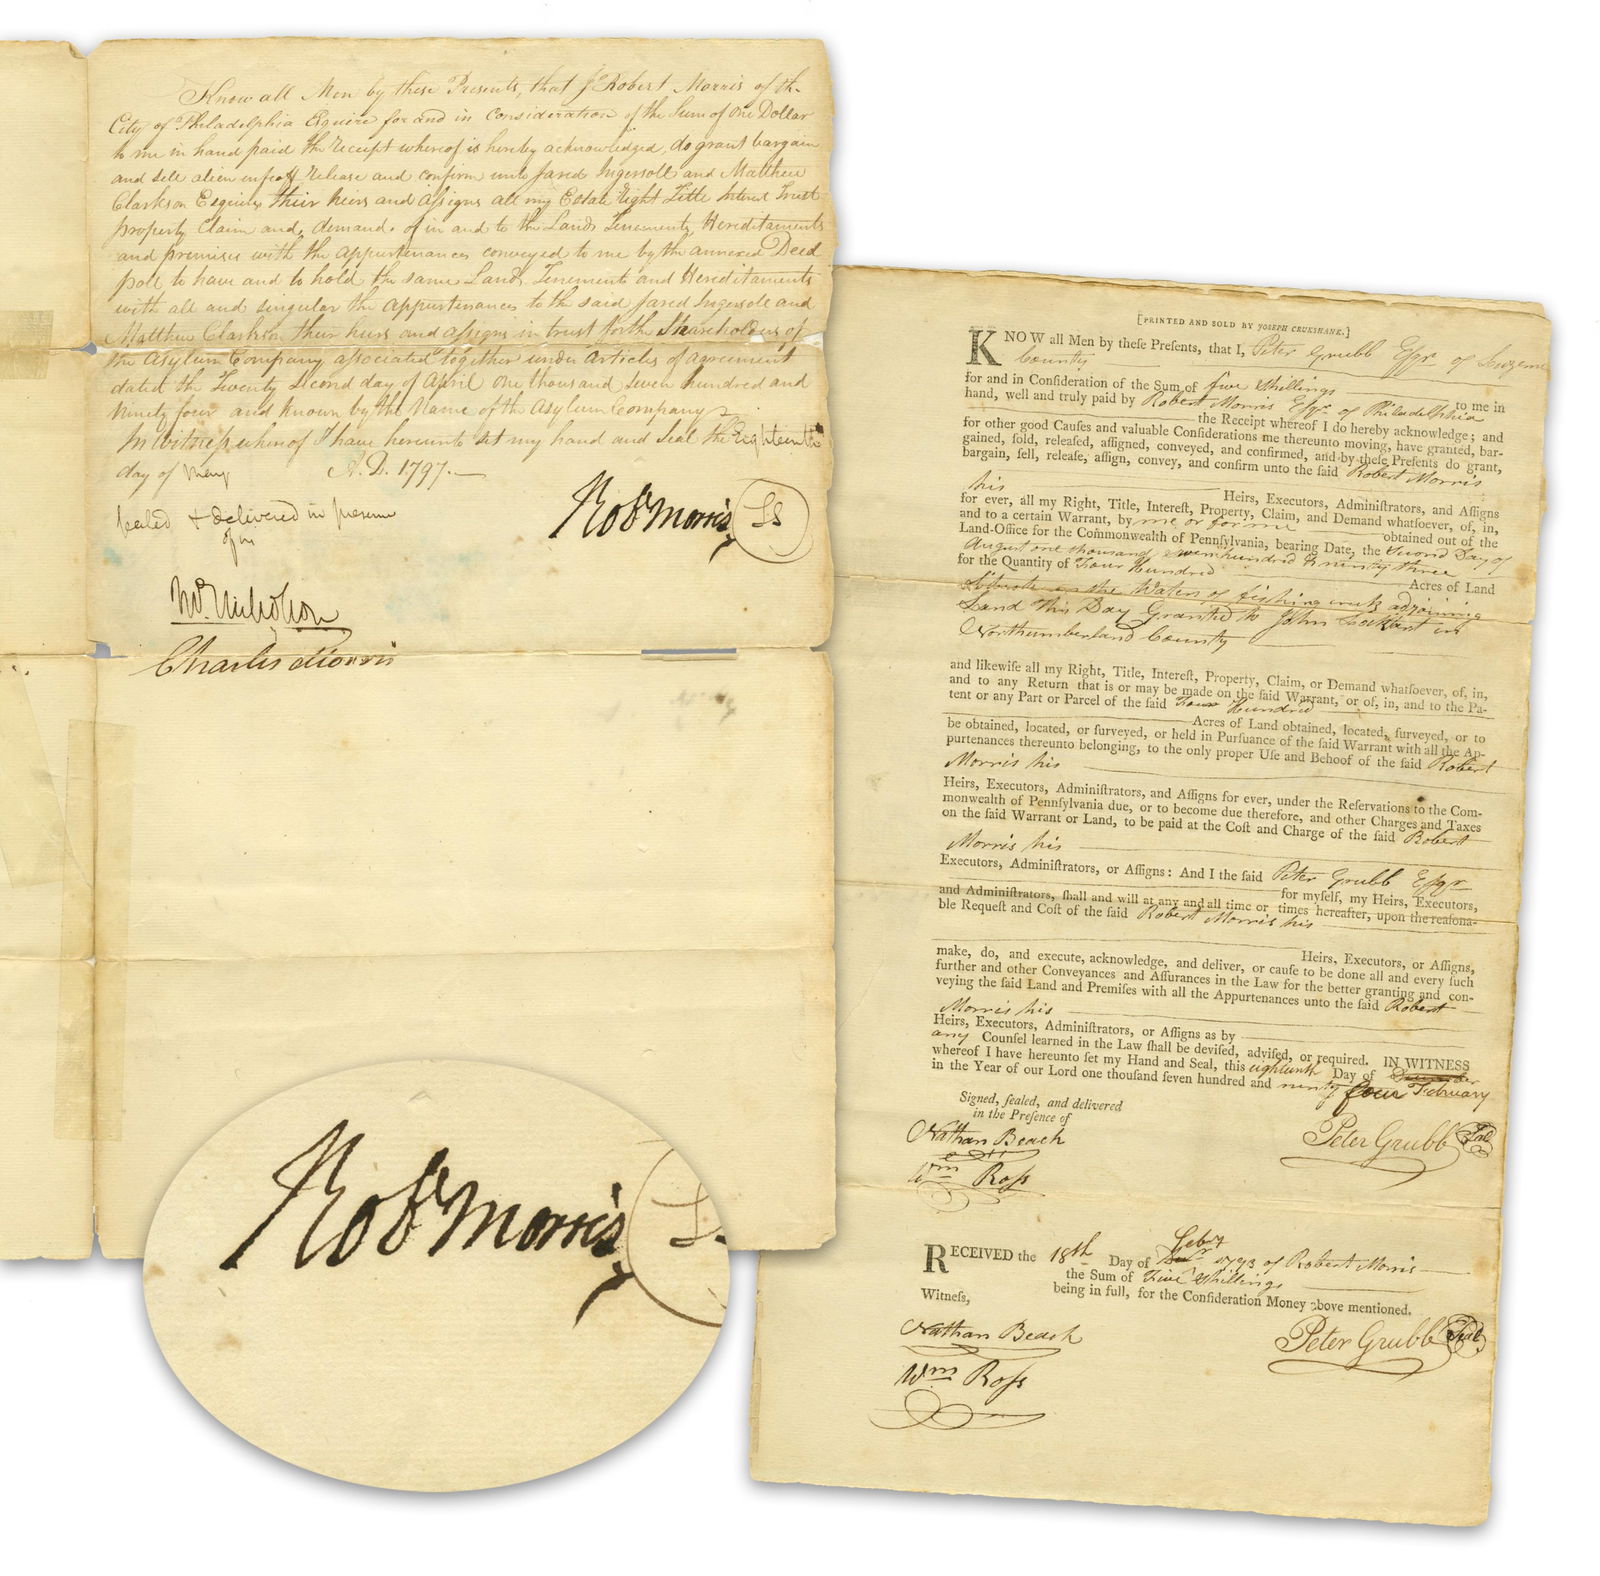 Know all Men by these Presents, that I Robert Morris of the
City of Philadelphia Esquire for and in consideration of the Sum of One Dollar
to me in hand paid the receipt whereof is hereby acknowledged, do grant bargain
and sell alien enfeoff release and confirm unto Jared Ingersoll and Matthew
Clarkson Esquires their heirs and assigns all my Estate right Title Interest Trust
property Claim and demand of in and to the Lands Tenements, Hereditaments
and premises with the appurtenances conveyed to me by the annexed Deed
poll to have and to hold the same Lands, Tenements and Hereditaments
with all and singular the appurtenances to the said Jared Ingersoll and
Matthew Clarkson their heirs and assigns in trust for the Shareholders of
the Asylum Company associated together under articles of agreement
dated the Twenty second day of April one thousand seven hundred and
Ninety four and known by the Name of the Asylum Company
In witness whereof I have hereunto set my hand and Seal the Eighteenth
day of May A.D. 1797.
Sealed & delivered in presence
of us
Robt Morris LS
Wm. Nicholson
Charles Morris
Robt Morris
[PRINTED AND SOLD BY JOSEPH CRUKSHANK.]
KNOW all Men by theſe Preſents, that I, Peter Grubb Esqr of Luzerne
County
for and in Conſideration of the Sum of five Shillings to me in
hand, well and truly paid by Robert Morris Esqr. of Philadelphia
the Receipt whereof I do hereby acknowledge; and
for other good Cauſes and valuable Conſiderations me thereunto moving, have granted, bar-
gained, ſold, releaſed, aſſigned, conveyed, and confirmed, and by theſe Preſents do grant,
bargain, ſell, releaſe, aſſign, convey, and confirm unto the ſaid Robert Morris
his Heirs, Executors, Adminiſtrators, and Aſſigns
for ever, all my Right, Title, Intereſt, Property, Claim, and Demand whatſoever, of, in,
and to a certain Warrant, by me or for me obtained out of the
Land-Office for the Commonwealth of Pennſylvania, bearing Date, the Second Day of
August one thousand seven hundred & ninety three
for the Quantity of Four Hundred Acres of Land
Situate on the Waters of fishing creek adjoining
Land this Day Granted to John in
Northumberland County
and likewiſe all my Right, Title, Intereſt, Property, Claim, or Demand whatſoever, of, in,
and to any Return that is or may be made on the ſaid Warrant, or of, in, and to the Pa-
tent or any Part or Parcel of the ſaid Four Hundred
Acres of Land obtained, located, ſurveyed, or to
be obtained, located, or ſurveyed, or held in Purſuance of the ſaid Warrant with all the Ap-
purtenances thereunto belonging, to the only proper Uſe and Behoof of the ſaid Robert
Morris his
Heirs, Executors, Adminiſtrators, and Aſſigns for ever, under the Reſervations to the Com-
monwealth of Pennſylvania due, or to become due therefore, and other Charges and Taxes
on the ſaid Warrant or Land, to be paid at the Coſt and Charge of the ſaid Robert
Morris his
Executors, Adminiſtrators, or Aſſigns: And I the ſaid Peter Grubb Esqr
for myſelf, my Heirs, Executors,
and Adminiſtrators, ſhall and will at any and all time or times hereafter, upon the reaſona-
ble Requeſt and Coſt of the ſaid Robert Morris his
Heirs, Executors, or Aſſigns,
make, do, and execute, acknowledge, and deliver, or cauſe to be done all and every ſuch
further and other Conveyances and Aſſurances in the Law for the better granting and con-
veying the ſaid Land and Premiſes with all the Appurtenances unto the ſaid Robert
Morris his
Heirs, Executors, Adminiſtrators, or Aſſigns as by
any Counſel learned in the Law ſhall be deviſed, adviſed, or required. IN WITNESS
whereof I have hereunto ſet my Hand and Seal, this eighteenth Day of December
in the Year of our Lord one thouſand ſeven hundred and ninety four February
Signed, ſealed, and delivered
in the Preſence of
Nathan Beach
Wm Roſs
Peter Grubb Seal
RECEIVED the 18th Day of Feby 1793 of Robert Morris
the Sum of Five Shillings
being in full, for the Conſideration Money above mentioned.
Witneſs,
Nathan Beach
Wm Roſs
Peter Grubb Seal